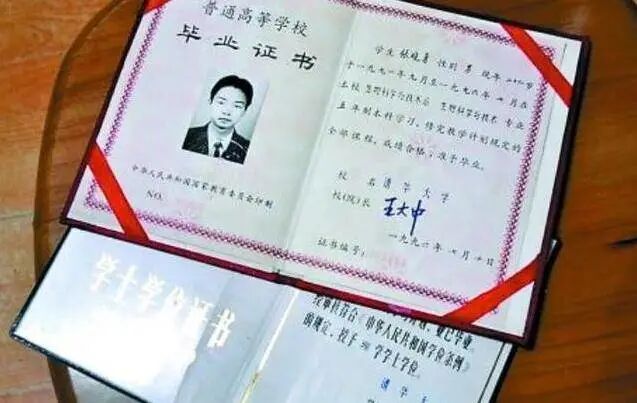 普通高等学校
毕业证书
中华人民共和国国家教育委员会印制
NO.
学生 张晓勇 性别 男 现年二十二岁
于一九九一年九月至一九九六年七月在
本校 生物科学与技术系 生物科学与技术 专业
五年制本科学习,修完教学计划规定的
全部课程,成绩合格,准予毕业。
校名 清华大学
校(院)长 王大中
证书编号:
一九九六年七月 日
学士学位证书
经审核符合《中华人民共和国学位条例》
的规定,授予 学学士学位。
清华